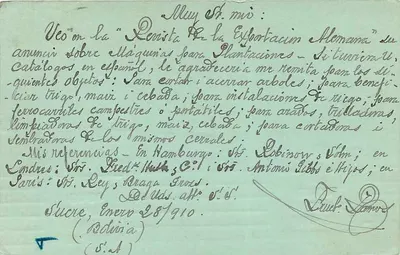 Muy Sr. mio:
Veo en la "Revista de la Exportacion Alemana" su
anuncio sobre Máquinas para Plantaciones - Si tuviera U.
Catálogos en español, le agradeceria me remita para los si-
guientes objetos: Para cortar i acarrear arboles; para benefi-
ciar trigo, maiz i cebada; para instalaciones de riego; para
ferrocarriles campestres ó portátiles; para arados, trilladoras,
limpiadoras de trigo, maiz, cebada; para cortadoras i
sembradoras de los mismos cereales.
Mis referencias - En Hamburgo: Srs. Robinow, Sohn; en
Londres: Srs. Fredk. Huth & Co. i Srs. Antonio Gibbs é Hijos; en
Paris: Srs. Rey, Braga Frois.
De Uds. atto. S. S.
Sucre, Enero 28/910.
(Bolivia)
(S. A)